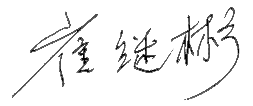 崔继彬